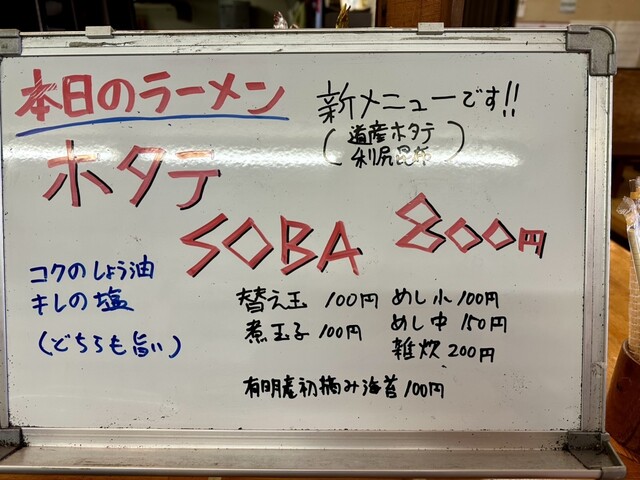 本日のラーメン
新メニューです!!
(道産ホタテ
利尻昆布)
ホタテ
SOBA 800円
コクのしょう油
キレの塩
(どちらも旨い)
替え玉 100円 めし小 100円
煮玉子 100円 めし中 150円
雑炊 200円
有明産初摘み海苔 100円